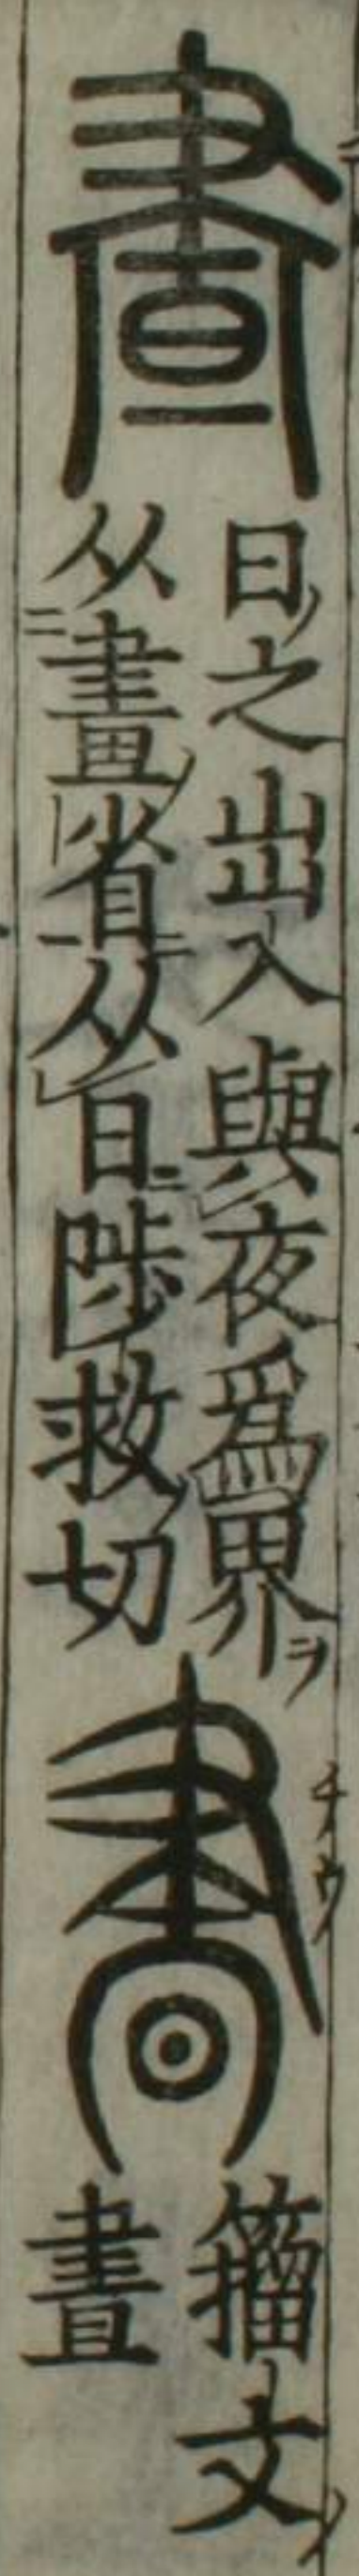 晝
日之出入與夜爲界ヲ
从畫省从日陟救切
晝チウ
籒文ノ
晝